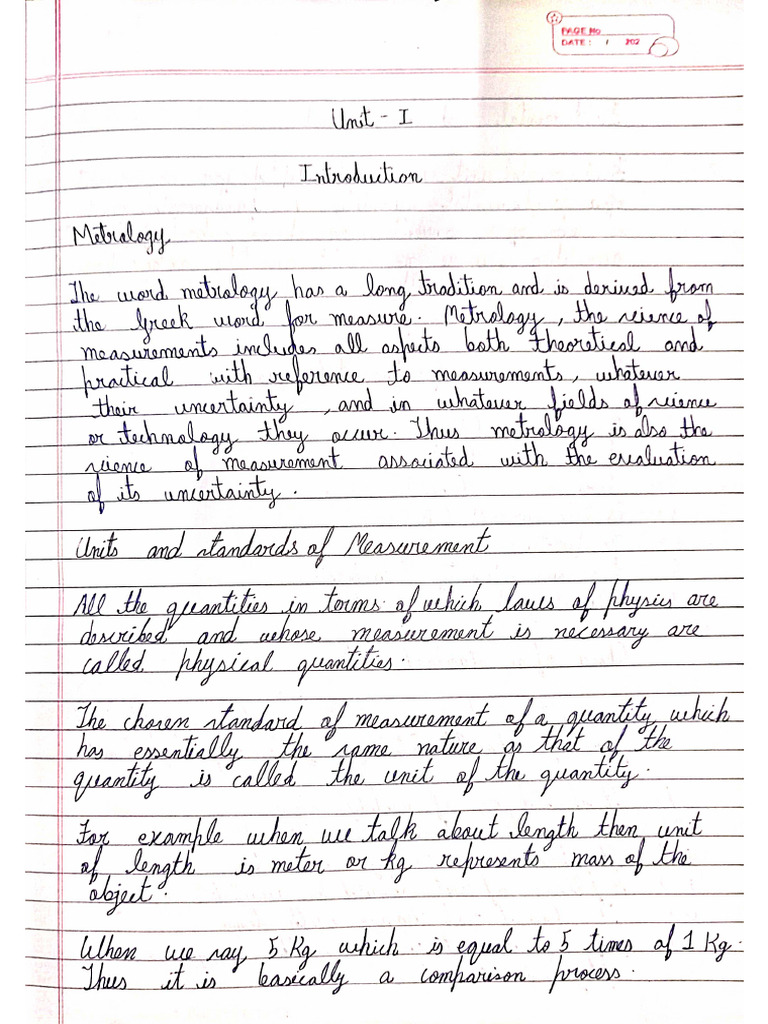 PAGE No
DATE: / 202
Unit - I
Introduction
Metralogy
The word metrology has a long tradition and is derived from
the Greek word for measure. Metrology, the science of
measurements includes all aspects both theoretical and
practical with reference to measurements, whatever
their uncertainty, and in whatever fields of science
or technology they occur. Thus metrology is also the
science of measurement associated with the evaluation
of its uncertainty.
Units and standards of Measurement
All the quantities in terms of which laws of physics are
described and whose measurement is necessary are
called physical quantities.
The chosen standard of measurement of a quantity which
has essentially the same nature as that of the
quantity is called the unit of the quantity.
For example when we talk about length then unit
of length is meter or kg represents mass of the
object.
When we say 5 Kg which is equal to 5 times of 1 Kg.
Thus it is basically a comparison process.